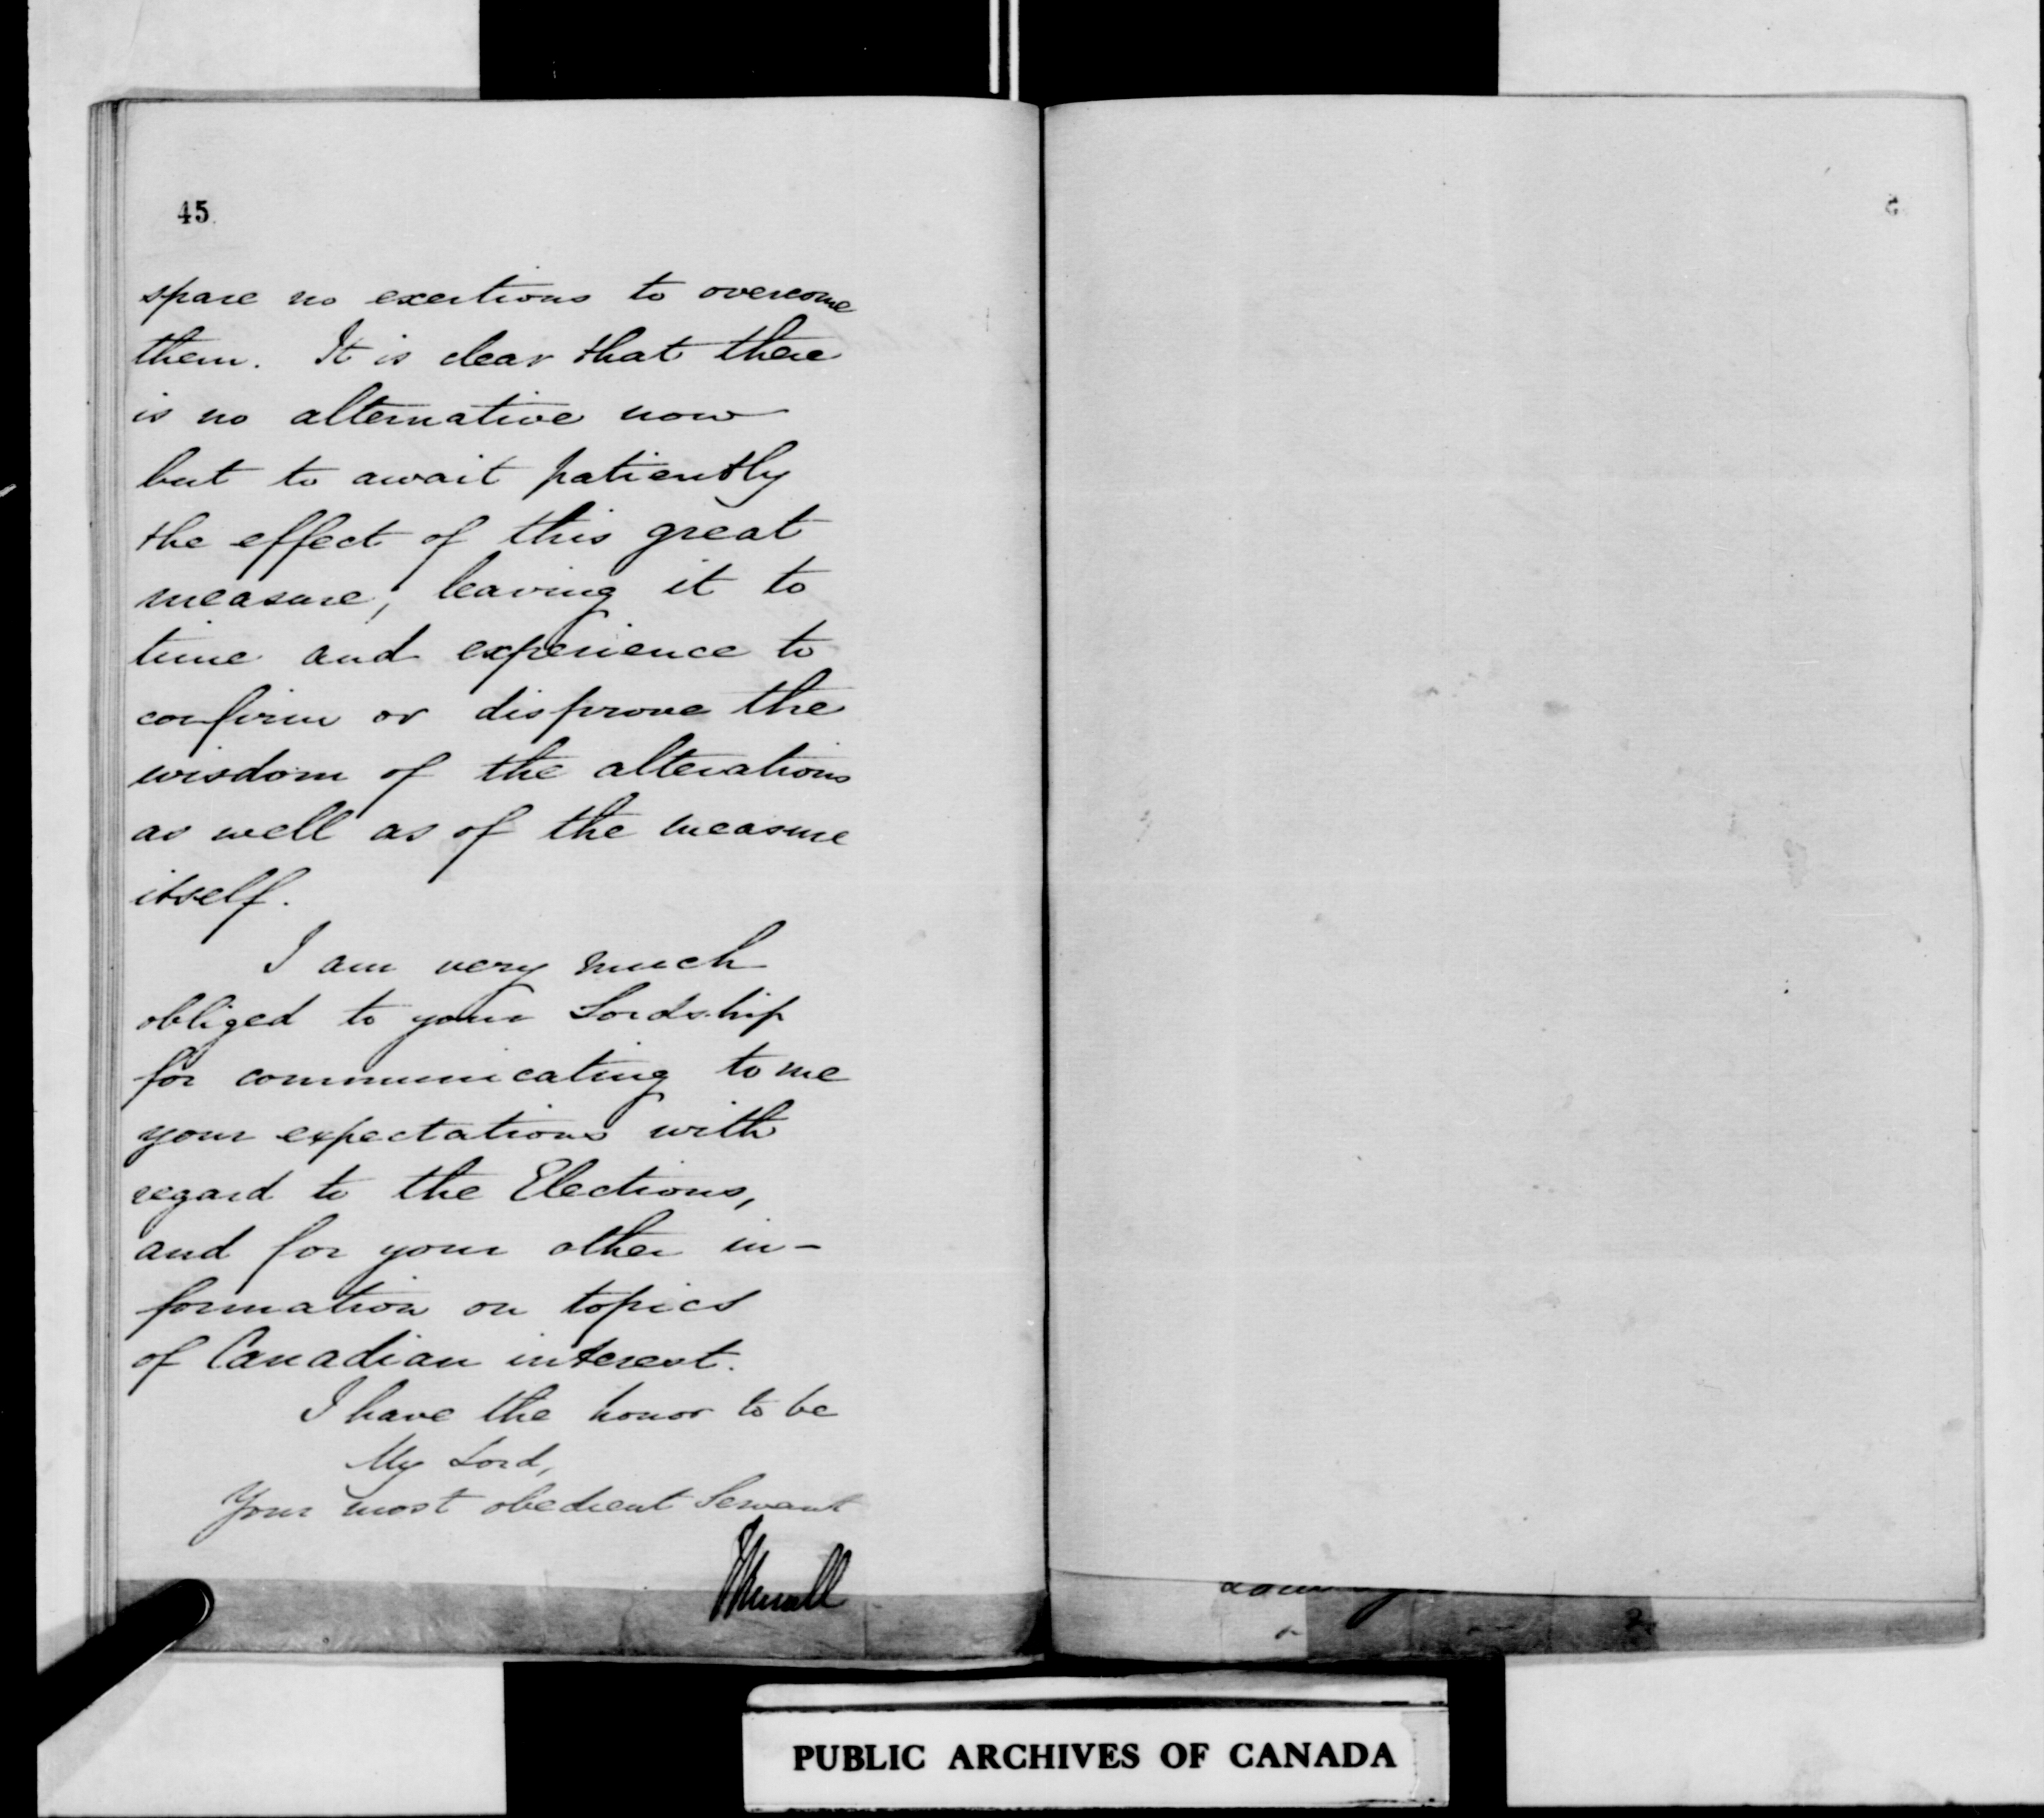 45
spare no exertions to overcome
them. It is clear that there
is no alternative now
but to await patiently
the effect of this great
measure, leaving it to
time and experience to
confirm or disprove the
wisdom of the alterations
as well as of the measure
itself.
I am very much
obliged to your Lordship
for communicating to me
your expectations with
regard to the Elections,
and for your other in-
formation on topics
of Canadian interest.
I have the honor to be
My Lord,
Your most obedient Servant
JRussell
PUBLIC ARCHIVES OF CANADA